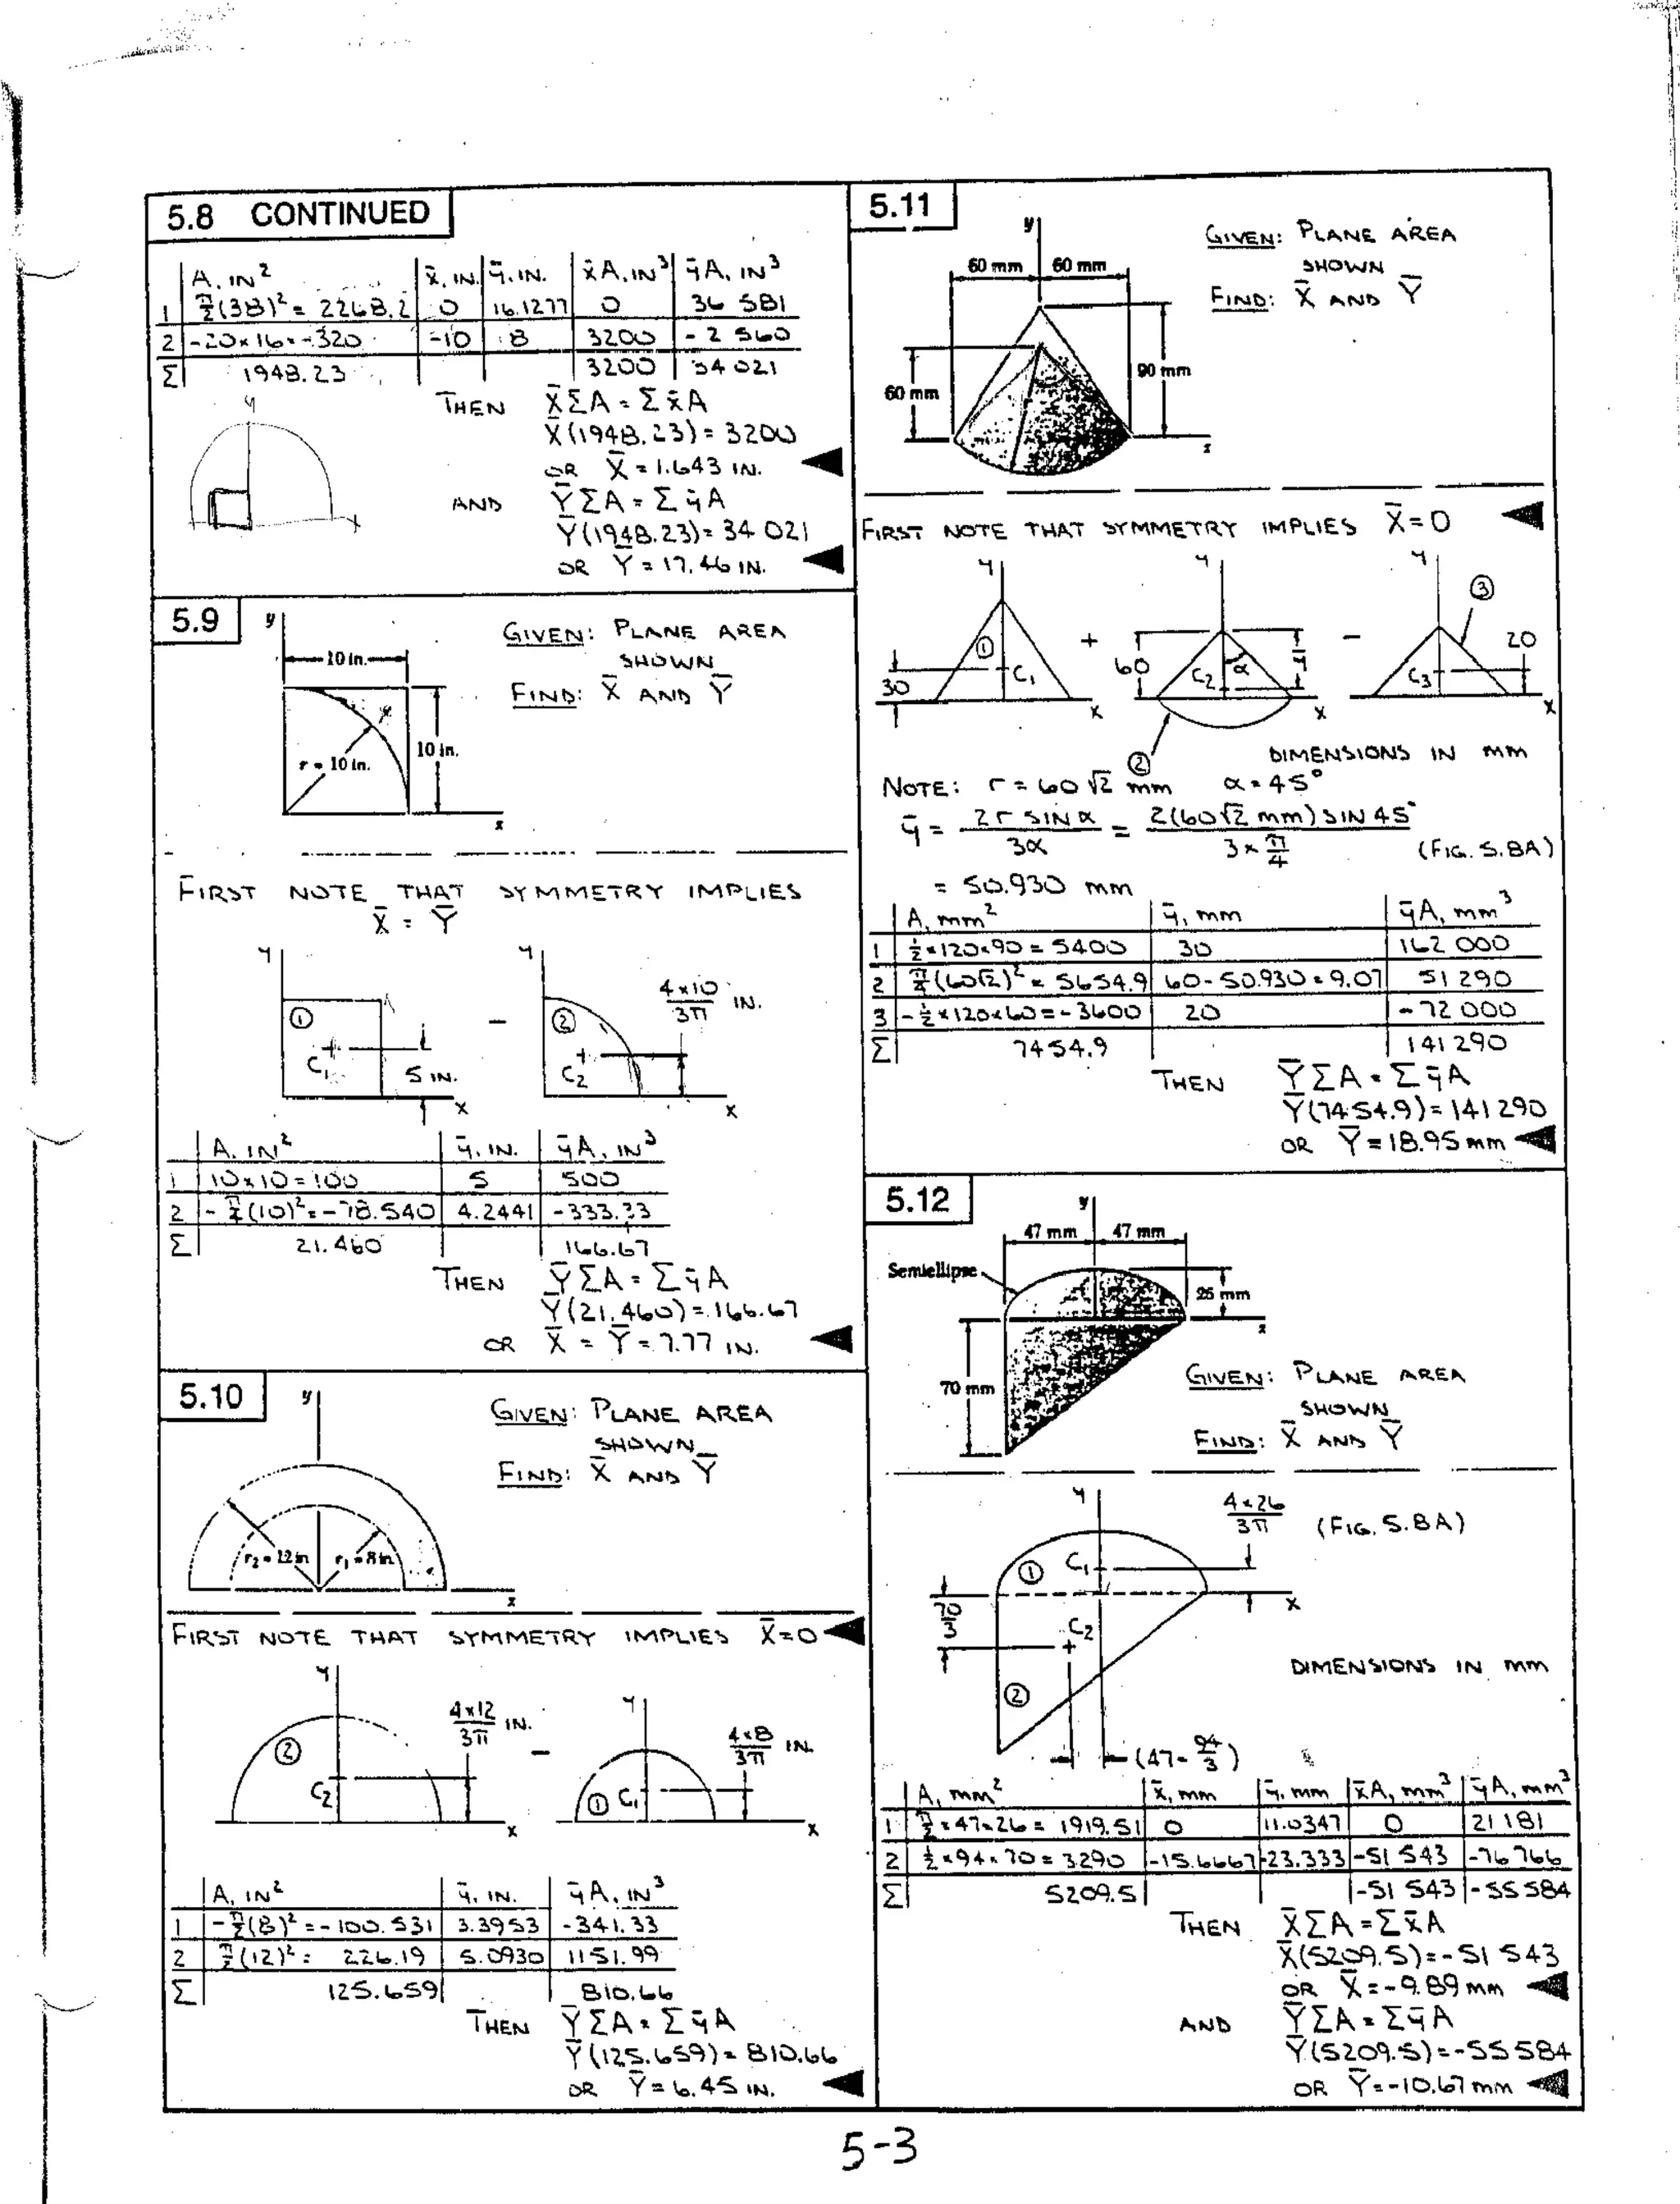 5.8 CONTINUED
A, IN² x̄, IN. ȳ, IN. x̄A, IN³ ȳA, IN³
1 π/2(38)² = 2268.2 0 16.1277 0 36 581
2 -20×16 = -320 -10 8 3200 -2 560
Σ 1948.23 3200 34 021
y
x
THEN X̄ΣA = Σx̄A
X̄(1948.23) = 3200
OR X̄ = 1.643 IN.
AND ȲΣA = ΣȳA
Ȳ(1948.23) = 34 021
OR Ȳ = 17.46 IN.
5.9
y
10 in.
10 in.
r = 10 in.
x
GIVEN: PLANE AREA
SHOWN
FIND: X̄ AND Ȳ
FIRST NOTE THAT SYMMETRY IMPLIES
X̄ = Ȳ
y ① C₁ 5 IN. x
−
y ② C₂ 4×10/3π IN. x
A, IN² ȳ, IN. ȳA, IN³
1 10×10 = 100 5 500
2 -π/4(10)² = -78.540 4.2441 -333.33
Σ 21.460 166.67
THEN ȲΣA = ΣȳA
Ȳ(21.460) = 166.67
OR X̄ = Ȳ = 7.77 IN.
5.10
y
r₂ = 12 in. r₁ = 8 in.
x
GIVEN: PLANE AREA
SHOWN
FIND: X̄ AND Ȳ
FIRST NOTE THAT SYMMETRY IMPLIES X̄=0
y ② C₂ 4×12/3π IN. x
−
y ① C₁ 4×8/3π IN. x
A, IN² ȳ, IN. ȳA, IN³
1 -π/2(8)² = -100.531 3.3953 -341.33
2 π/2(12)² = 226.19 5.0930 1151.99
Σ 125.659 810.66
THEN ȲΣA = ΣȳA
Ȳ(125.659) = 810.66
OR Ȳ = 6.45 IN.
5.11
y
60 mm 60 mm
60 mm
90 mm
x
GIVEN: PLANE AREA
SHOWN
FIND: X̄ AND Ȳ
FIRST NOTE THAT SYMMETRY IMPLIES X̄=0
y ① C₁ 30 x
+
y 60 C₂ α ȳ ② x
−
y ③ C₃ 20 x
DIMENSIONS IN mm
NOTE: r = 60√2 mm α = 45°
ȳ = 2r SIN α/3α = 2(60√2 mm) SIN 45°/3×π/4 (FIG. 5.8A)
= 50.930 mm
A, mm² ȳ, mm ȳA, mm³
1 ½×120×90 = 5400 30 162 000
2 π/4(60√2)² = 5654.9 60-50.930 = 9.07 51 290
3 -½×120×60 = -3600 20 -72 000
Σ 7454.9 141 290
THEN ȲΣA = ΣȳA
Ȳ(7454.9) = 141 290
OR Ȳ = 18.95 mm
5.12
y
47 mm 47 mm
Semiellipse
26 mm
x
70 mm
GIVEN: PLANE AREA
SHOWN
FIND: X̄ AND Ȳ
y
4×26/3π (FIG. 5.8A)
① C₁
x
70/3
C₂
②
DIMENSIONS IN mm
(47-94/3)
A, mm² x̄, mm ȳ, mm x̄A, mm³ ȳA, mm³
1 π/2×47×26 = 1919.51 0 11.0347 0 21 181
2 ½×94×70 = 3290 -15.6667 -23.333 -51 543 -76 766
Σ 5209.51 -51 543 -55 584
THEN X̄ΣA = Σx̄A
X̄(5209.5) = -51 543
OR X̄ = -9.89 mm
AND ȲΣA = ΣȳA
Ȳ(5209.5) = -55 584
OR Ȳ = -10.67 mm
5-3